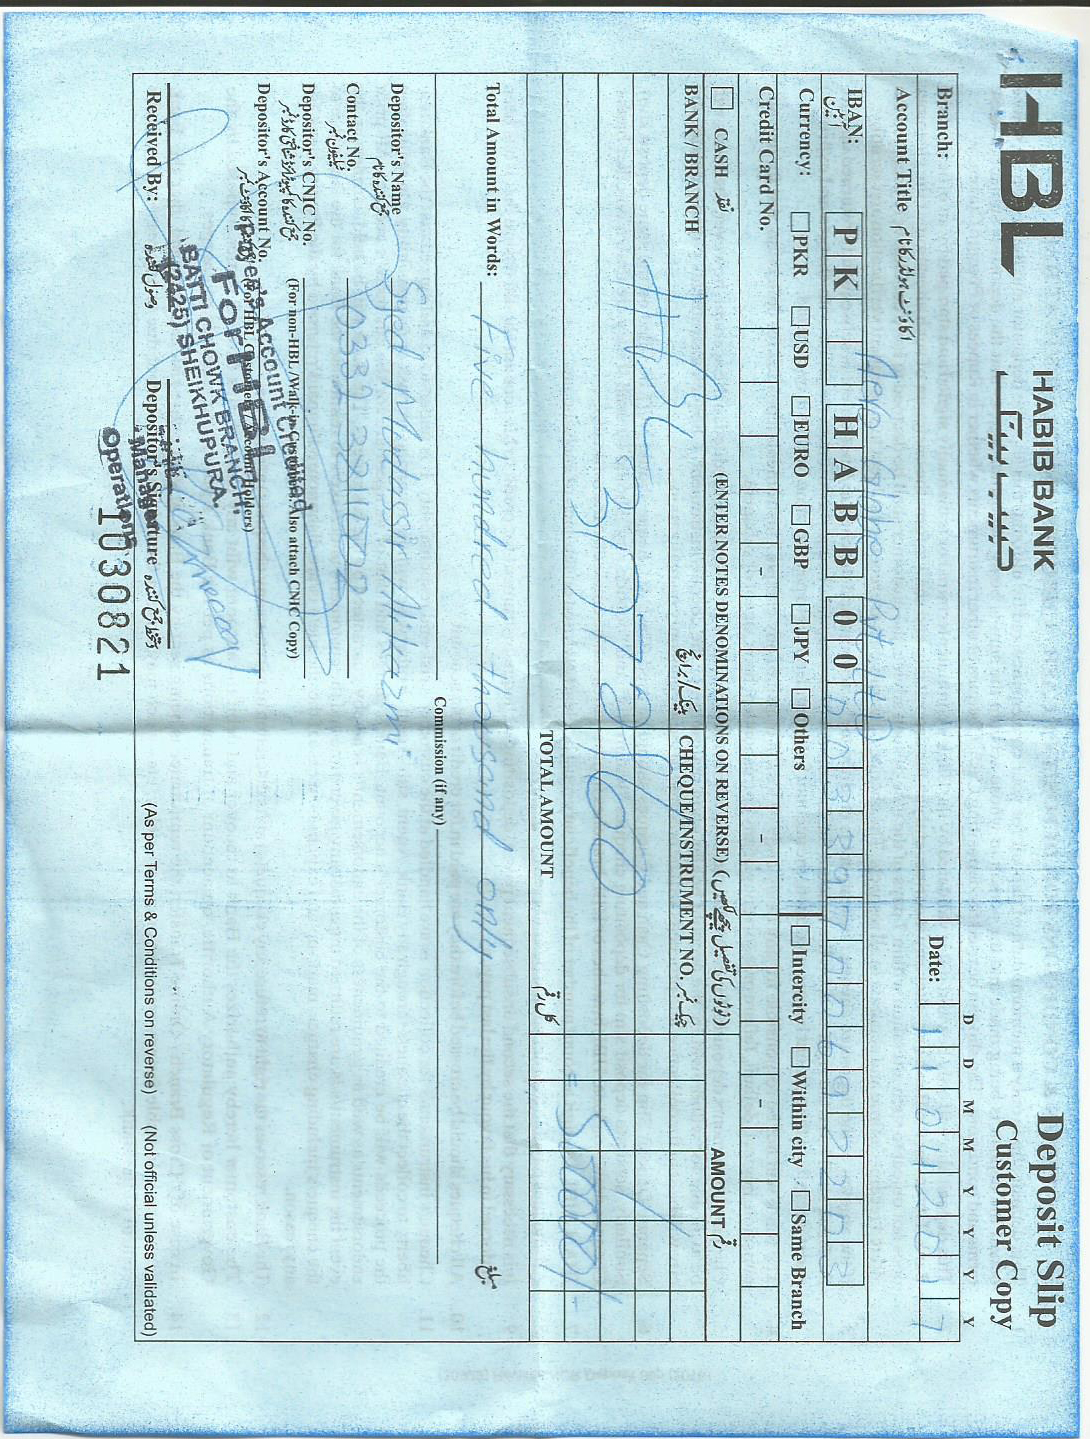 HBL HABIB BANK Deposit Slip
حبیب بینک Customer Copy
D D M M Y Y Y Y
Branch: Date: 1 1 0 4 2 0 1 7
Account Title اکاؤنٹ ہولڈر کا نام
Aero Globe Pvt Ltd
IBAN: آئبین P K H A B B 0 0 0 0 3 3 9 7 0 0 6 9 2 2 0 3
Currency: PKR USD EURO GBP JPY Others Intercity Within city Same Branch
Credit Card No. - - -
CASH نقد (ENTER NOTES DENOMINATIONS ON REVERSE) (نوٹوں کی تفصیل پیچھے لکھیں) AMOUNT رقم
BANK / BRANCH بینک/برانچ CHEQUE/INSTRUMENT NO. چیک نمبر
HBL
= 500000/-
TOTAL AMOUNT کل رقم
Total Amount in Words: Five hundred thousand only مبلغ
Commission (if any)
Depositor's Name Syed Mudassir Ali Kazmi
جمع کنندہ کا نام
Contact No.
ٹیلیفون نمبر
Depositor's CNIC No.
جمع کنندہ کا کمپیوٹرائزڈ شناختی کارڈ نمبر (For non-HBL /Walk-in Customers. Also attach CNIC Copy)
Payee's Account Credited
Depositor's Account No.
(For HBL Customers / Account Holders)
For HBL
BATTI CHOWK BRANCH,
(2425) SHEIKHUPURA.
Received By: وصول کنندہ Depositor's Signature دستخط جمع کنندہ (As per Terms & Conditions on reverse) (Not official unless validated)
Manager
Operations
1030821